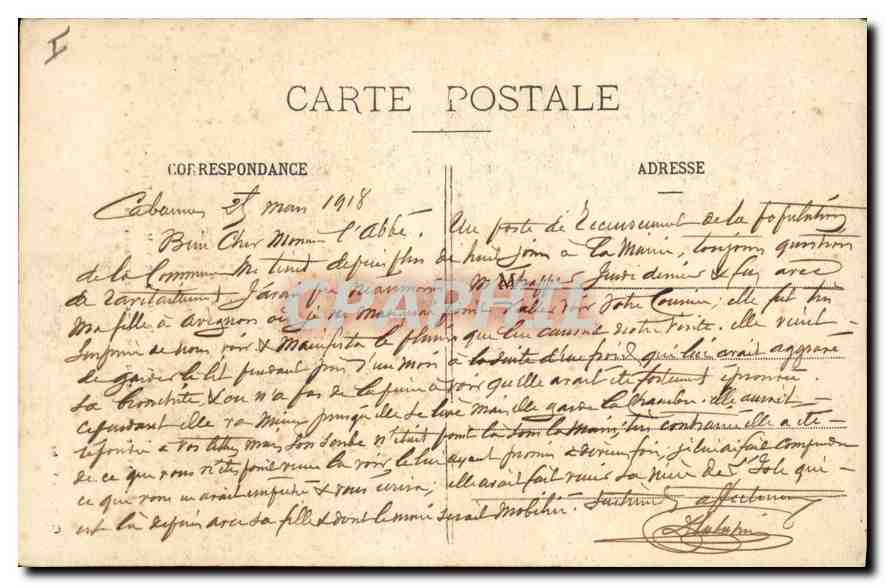 I
CARTE POSTALE
CORRESPONDANCE
ADRESSE
Cabannes 25 mars 1918
Bien Cher Monsieur l'Abbé. Un poste de recensement de la population
de la Commune me tient depuis plus de huit jours à la Mairie, toujours question
de ravitaillement. Jeudi dernier je fus avec
Ma fille à Avignon où je ne manquai pour aller voir Votre Cousine; elle fut très
surprise de nous voir & manifesta le plaisir que lui causait notre visite. elle vient
de garder le lit pendant près d'un mois à la suite d'un froid qui lui avait aggravé
sa bronchite & on n'a pas de la peine à voir qu'elle avait été fortement éprouvée.
cependant elle va mieux puisqu'elle se lève mais elle garde la chambre. elle aurait
répondu à vos lettres mais son monde n'était point là sous la main; très contrariée elle a été
de ce que vous n'êtes point venu la voir, le lui ayant promis & dix fois, je lui ai fait comprendre
ce que vous avait empêché & vous écrira, elle avait fait venir sa nièce de l'Isle qui
est là depuis avec sa fille & dont le mari serait mobilisé.